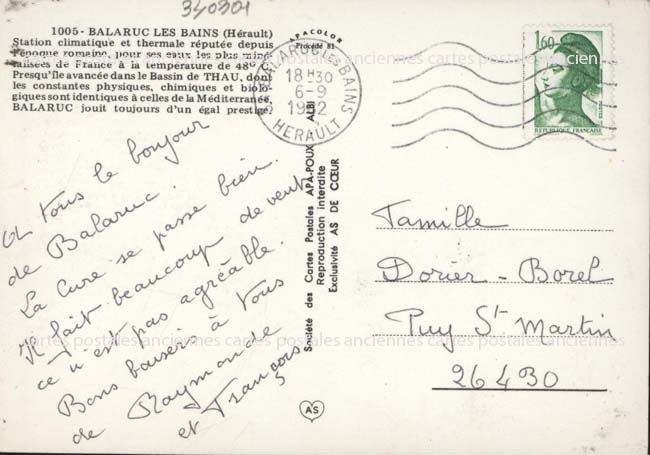 340301
1005 - BALARUC LES BAINS (Hérault)
Station climatique et thermale réputée depuis
l'époque romaine, pour ses eaux les plus miné-
ralisées de France à la température de 48° C.
Presqu'île avancée dans le Bassin de THAU, dont
les constantes physiques, chimiques et biolo-
giques sont identiques à celles de la Méditerranée.
BALARUC jouit toujours d'un égal prestige.
APACOLOR
Procédé 81
BALARUC LES BAINS
18H30
6-9
1982
HERAULT
1,60
POSTES
REPUBLIQUE FRANÇAISE
cartes postales anciennes cartes postales anciennes cartes postales anciennes
A tous le bonjour
de Balaruc.
La Cure se passe bien.
Il fait beaucoup de vent
ce n'est pas agréable.
Bons baisers à tous
de Raymonde
et François
Société des Cartes Postales APA-POUX ALBI
Reproduction interdite
Exclusivité AS DE CŒUR
AS
Famille
Dorier - Borel
Puy St Martin
26430
cartes postales anciennes cartes postales anciennes cartes postales anciennes